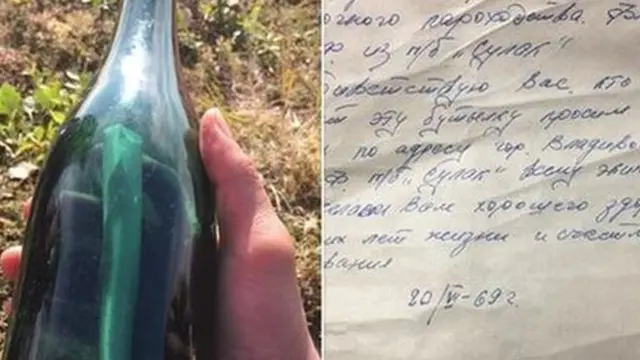 пароходства.
из т/б "Сулак"
Вас, кто
эту бутылку просим
по адресу гор. Владиво
т/б "Сулак" всему
Вам хорошего здо
лет жизни и счастли
вания
20/VI-69 г.